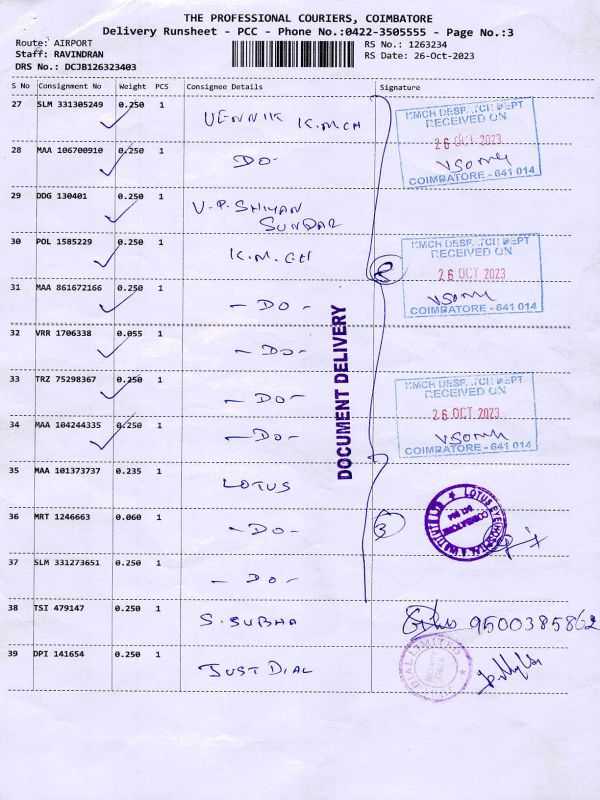 THE PROFESSIONAL COURIERS, COIMBATORE
Delivery Runsheet - PCC - Phone No.:0422-3505555 - Page No.:3
Route: AIRPORT
Staff: RAVINDRAN
DRS No.: DCJB126323403
RS No.: 1263234
RS Date: 26-Oct-2023
S No Consignment No Weight PCS Consignee Details Signature
27 SLM 331305249 0.250 1 VENNIK K.MCH
28 MAA 106700910 0.250 1 DO-
29 DDG 130401 0.250 1 V.P. SHIYAN SUNDAR
30 POL 1585229 0.250 1 K.M.CH
31 MAA 861672166 0.250 1 - DO -
32 VRR 1706338 0.055 1 - DO -
33 TRZ 75298367 0.250 1 - DO -
34 MAA 104244335 0.250 1 - DO -
35 MAA 101373737 0.235 1 LOTUS
36 MRT 1246663 0.060 1 - DO -
37 SLM 331273651 0.250 1 - DO -
38 TSI 479147 0.250 1 S. SUBHA 9500385862
39 DPI 141654 0.250 1 JUST DIAL
DOCUMENT DELIVERY
KMCH DESP...TCH DEPT
RECEIVED ON
26 OCT 2023
COIMBATORE - 641 014
KMCH DESP...TCH DEPT
RECEIVED ON
26 OCT 2023
COIMBATORE - 641 014
KMCH DESP...TCH DEPT
RECEIVED ON
26 OCT 2023
COIMBATORE - 641 014
8
3
LOTUS EYE HOSPITAL
COIMBATORE
DIAL LIMITED